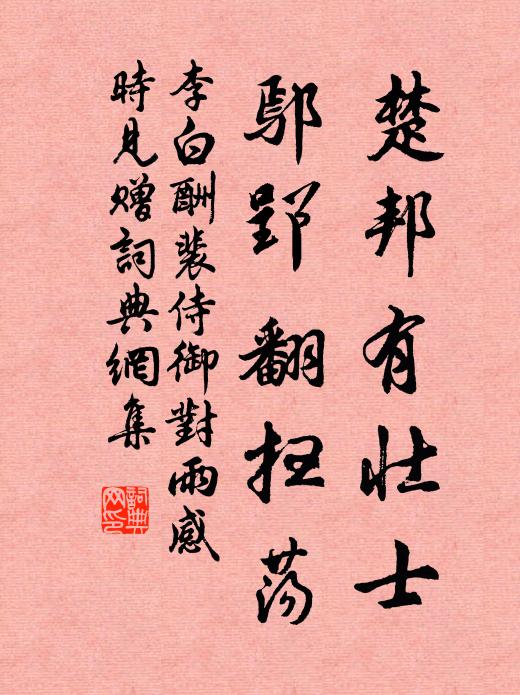 楚邦有壯士
鄢郢翻扫荡
李白酬裴侍御對雨感
時見赠詞典網集
詞典
网印